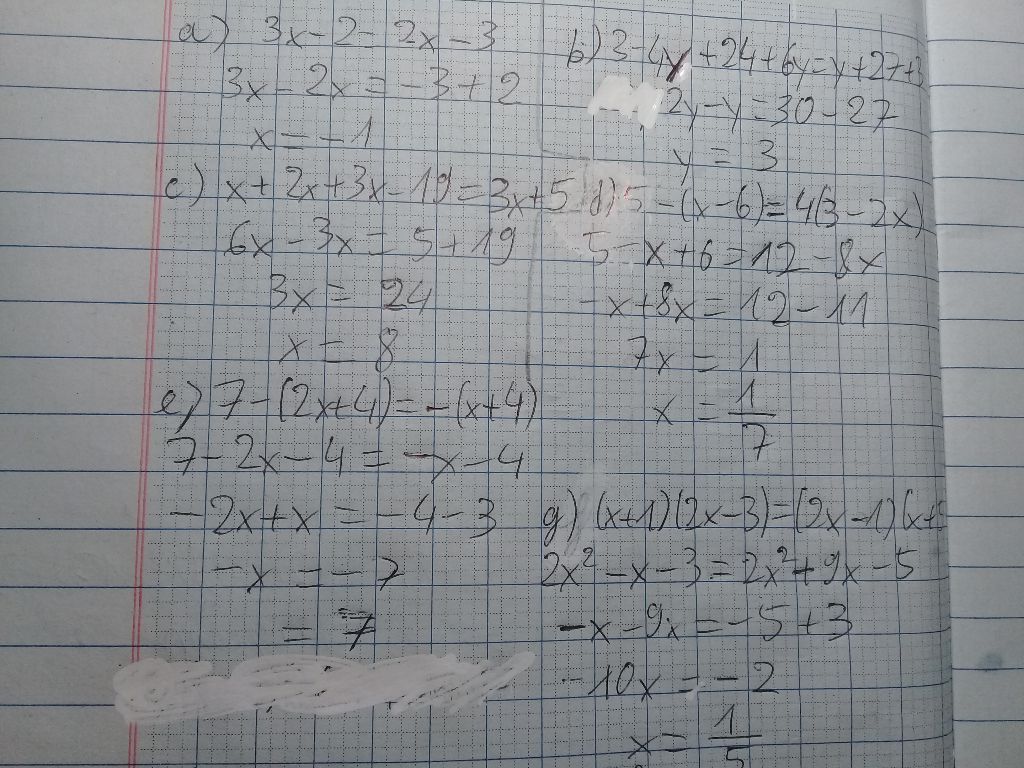 a) 3x-2=2x-3
3x-2x=-3+2
x=-1
b) 3-4y+24+6y=y+27+3
2y-y=30-27
y=3
c) x+2x+3x-19=3x+5
6x-3x=5+19
3x=24
x=8
d) 5-(x-6)=4(3-2x)
5-x+6=12-8x
-x+8x=12-11
7x=1
x=1/7
e) 7-(2x+4)=-(x+4)
7-2x-4=-x-4
-2x+x=-4-3
-x=-7
=7
g) (x+1)(2x-3)=(2x-1)(x+
2x²-x-3=2x²+9x-5
-x-9x=-5+3
-10x=-2
x=1/5